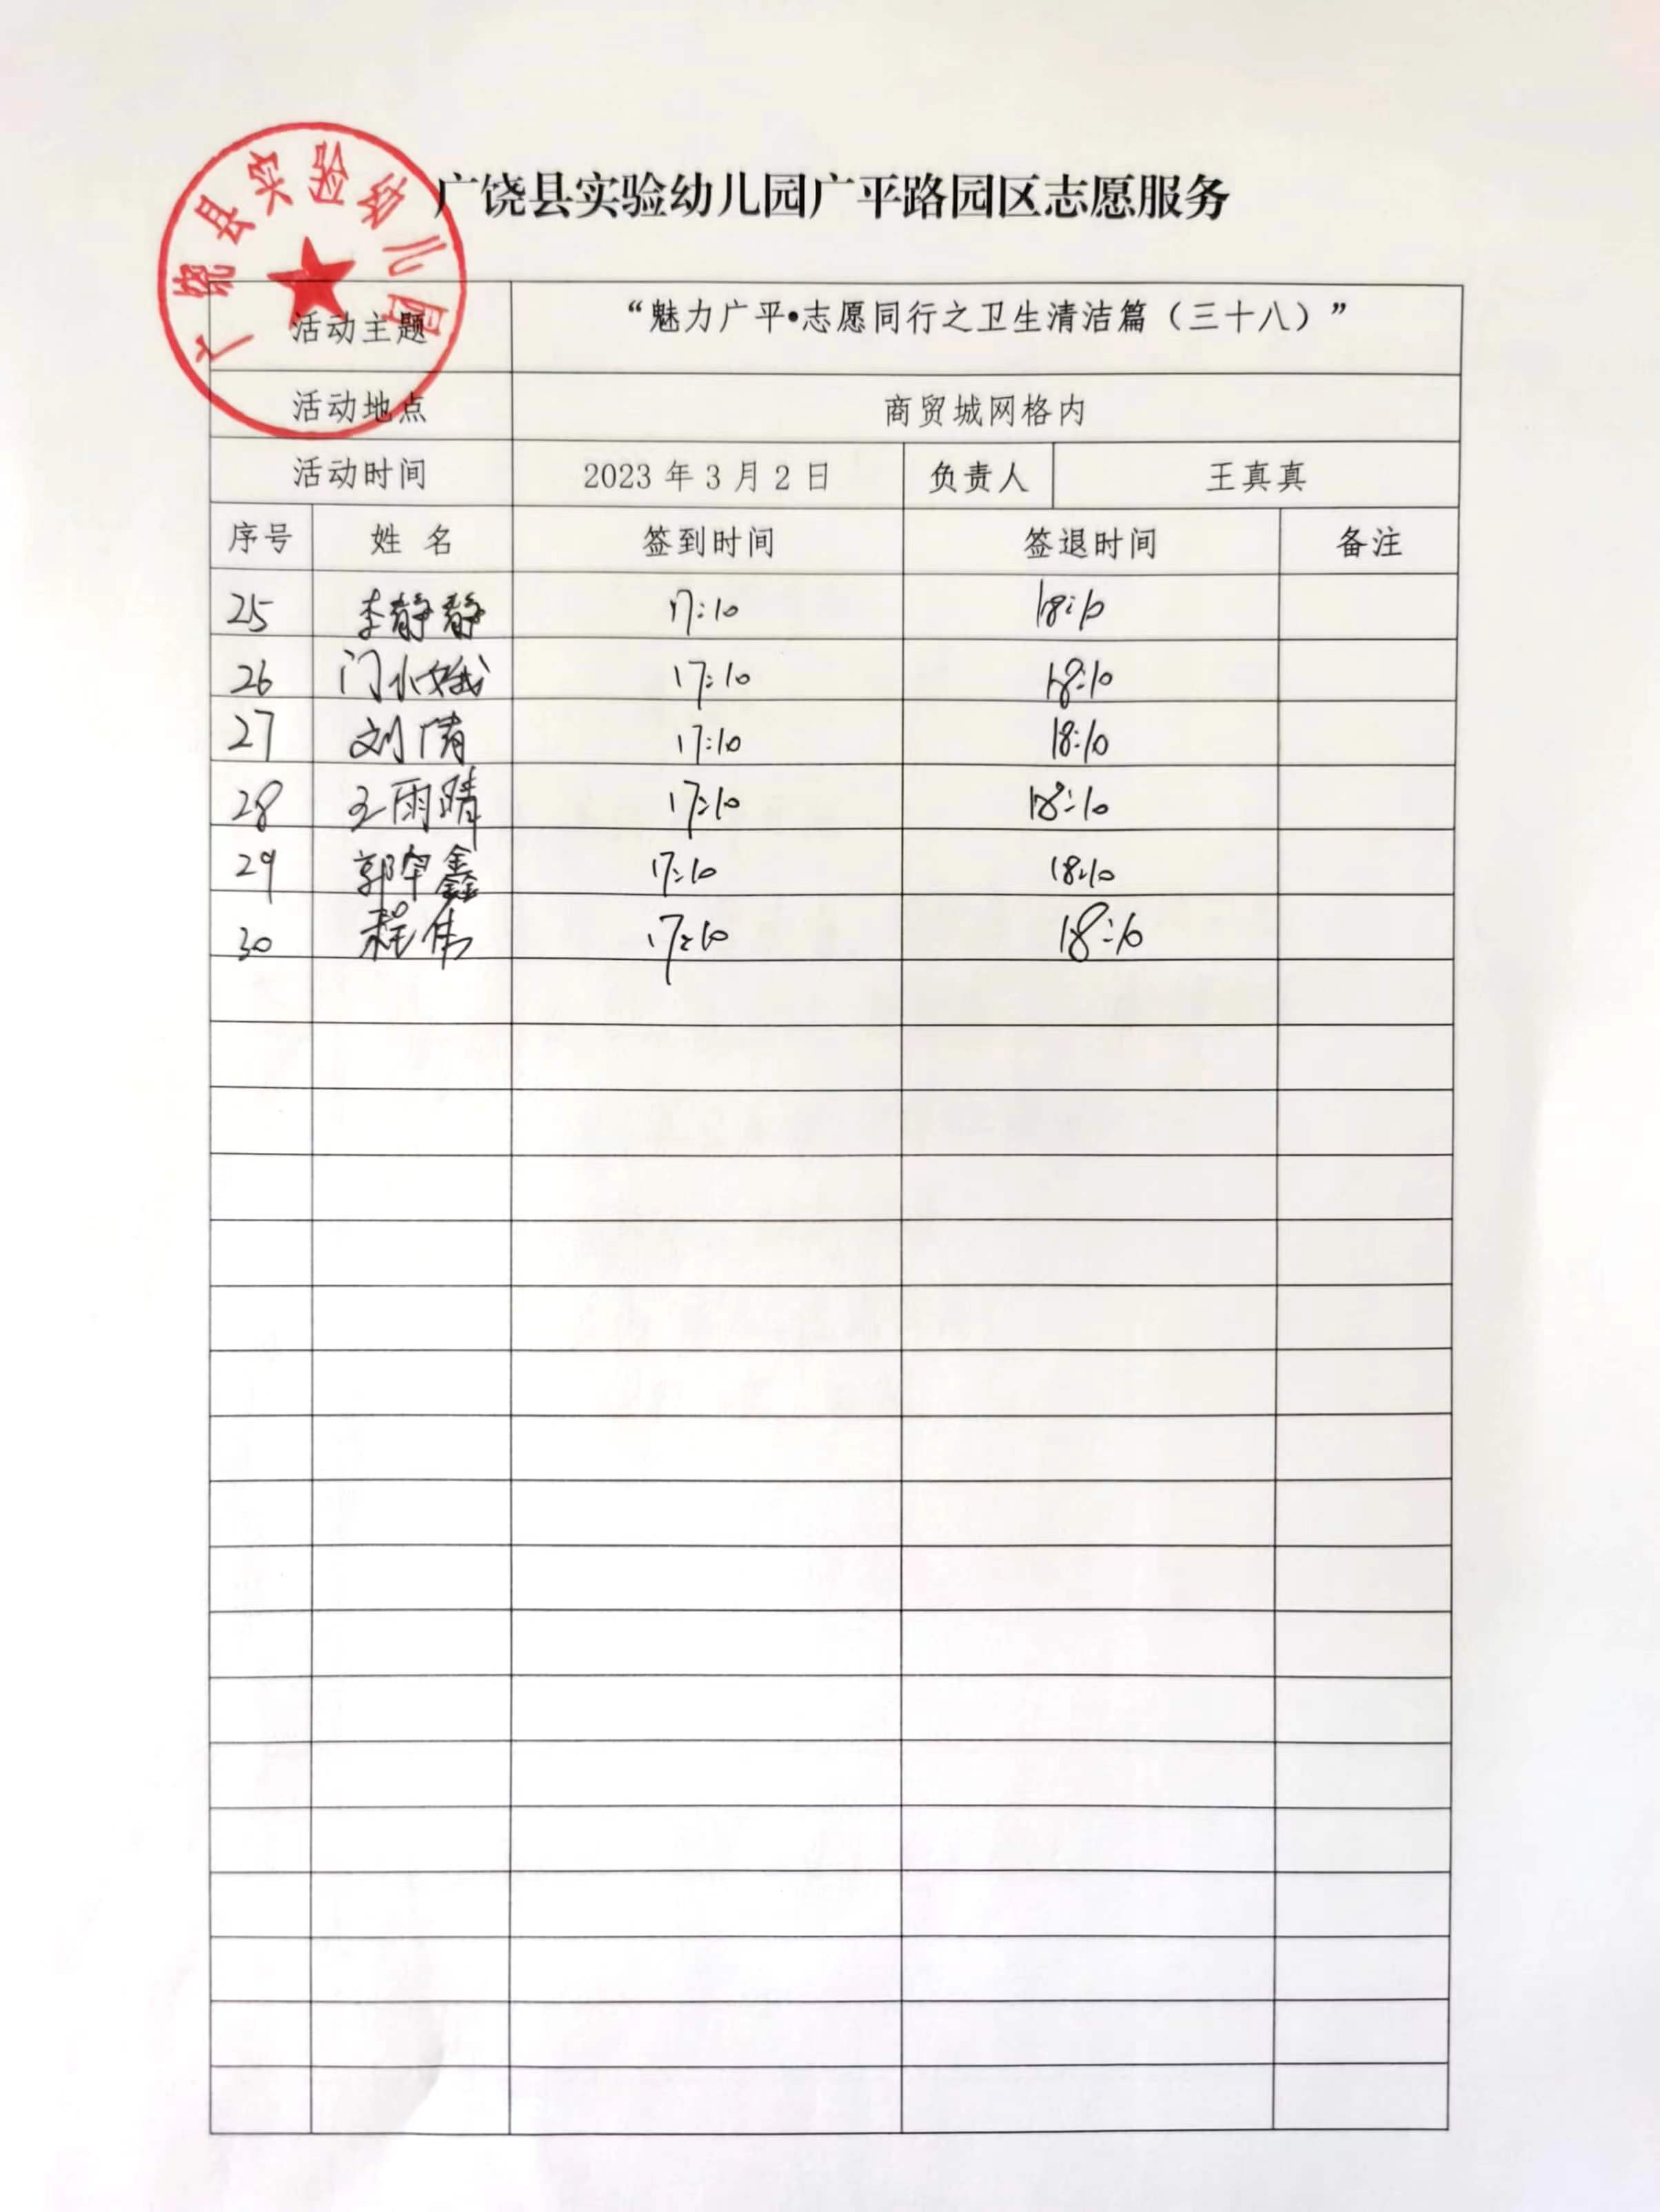 广饶县实验幼儿园
广饶县实验幼儿园广平路园区志愿服务
活动主题 “魅力广平•志愿同行之卫生清洁篇（三十八）”
活动地点 商贸城网格内
活动时间 2023年3月2日 负责人 王真真
序号 姓名 签到时间 签退时间 备注
25 李静静 17:10 18:10
26 门小娥 17:10 18:10
27 刘倩 17:10 18:10
28 王雨晴 17:10 18:10
29 郭 鑫 17:10 18:10
30 程伟 17:10 18:10